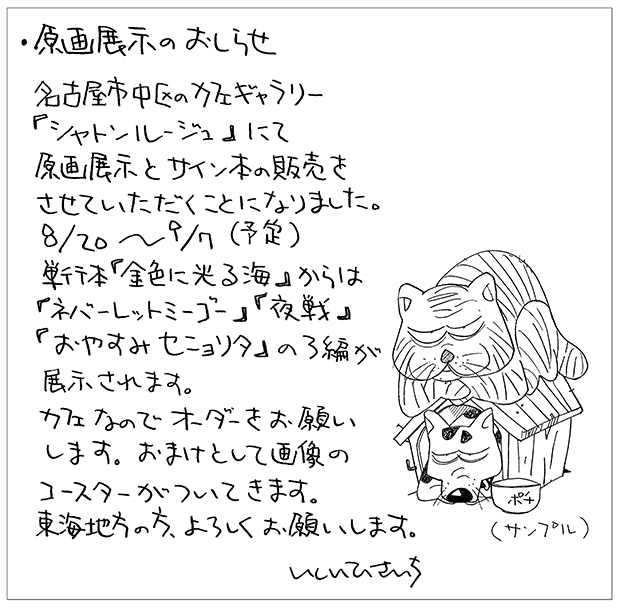 ・原画展示のおしらせ
名古屋市中区のカフェギャラリー
『シャトンルージュ』にて
原画展示とサイン本の販売を
させていただくことになりました。
8/20 〜9/7 (予定)
単行本『金色に光る海』からは
『ネバーレットミーゴー』『夜戦』
『おやすみセニョリタ』の3編が
展示されます。
カフェなのでオーダーをお願い
します。おまけとして画像の
コースターがついてきます。
東海地方の方、よろしくお願いします。
いしいひさいち
ポチ
(サンプル)